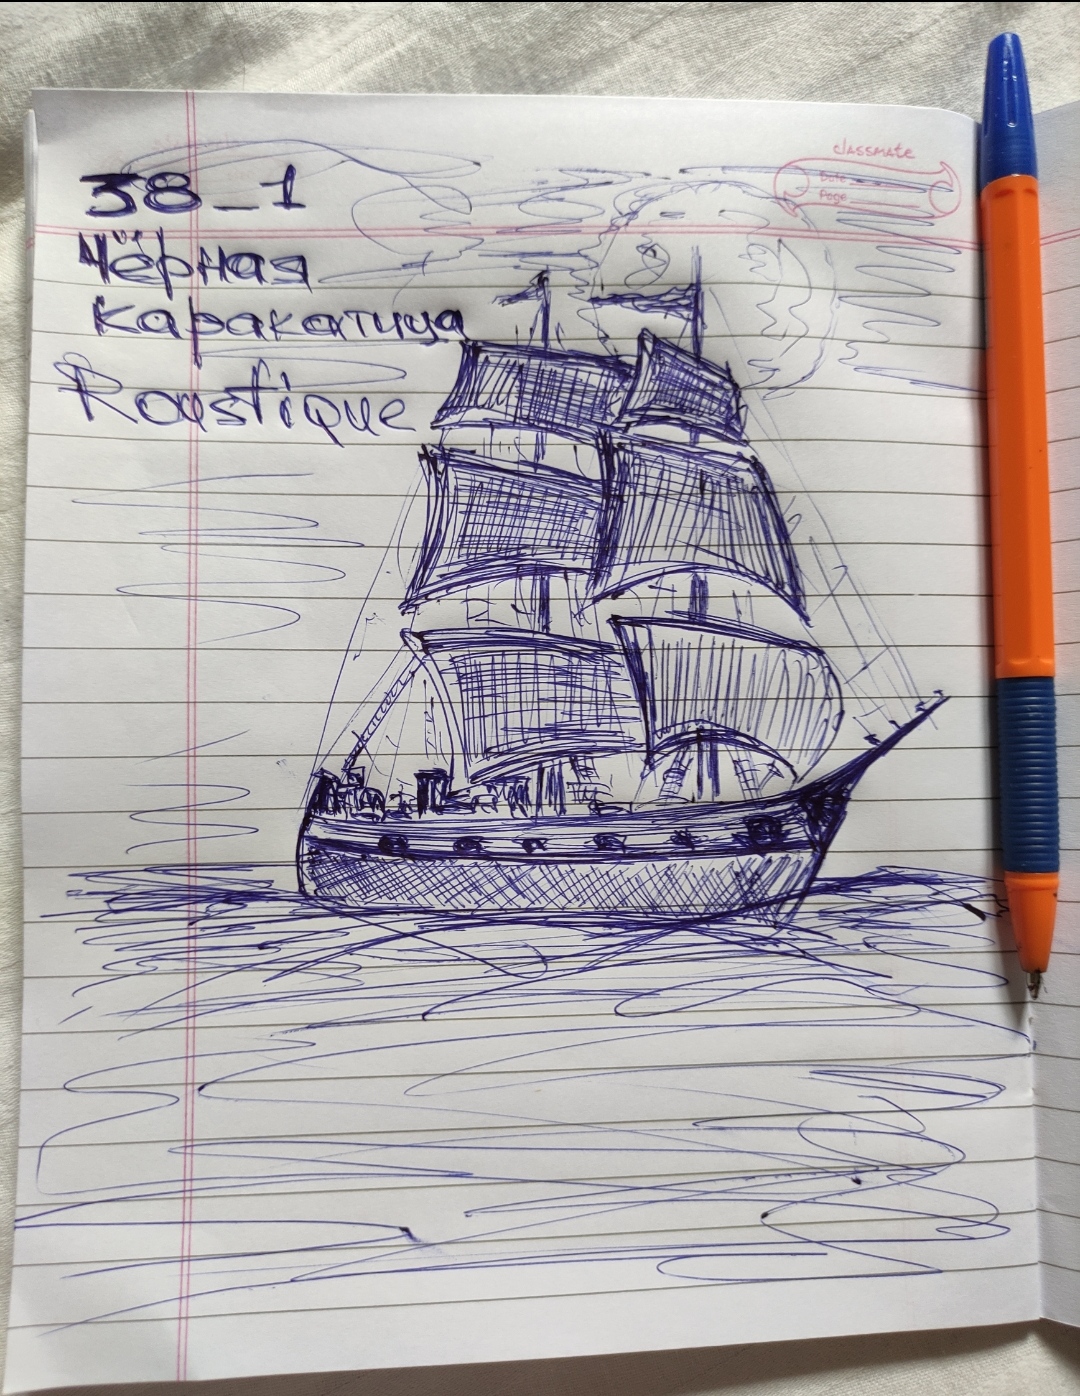 38_1
Чёрная
каракатица
Roastique
classmate
Date
Page